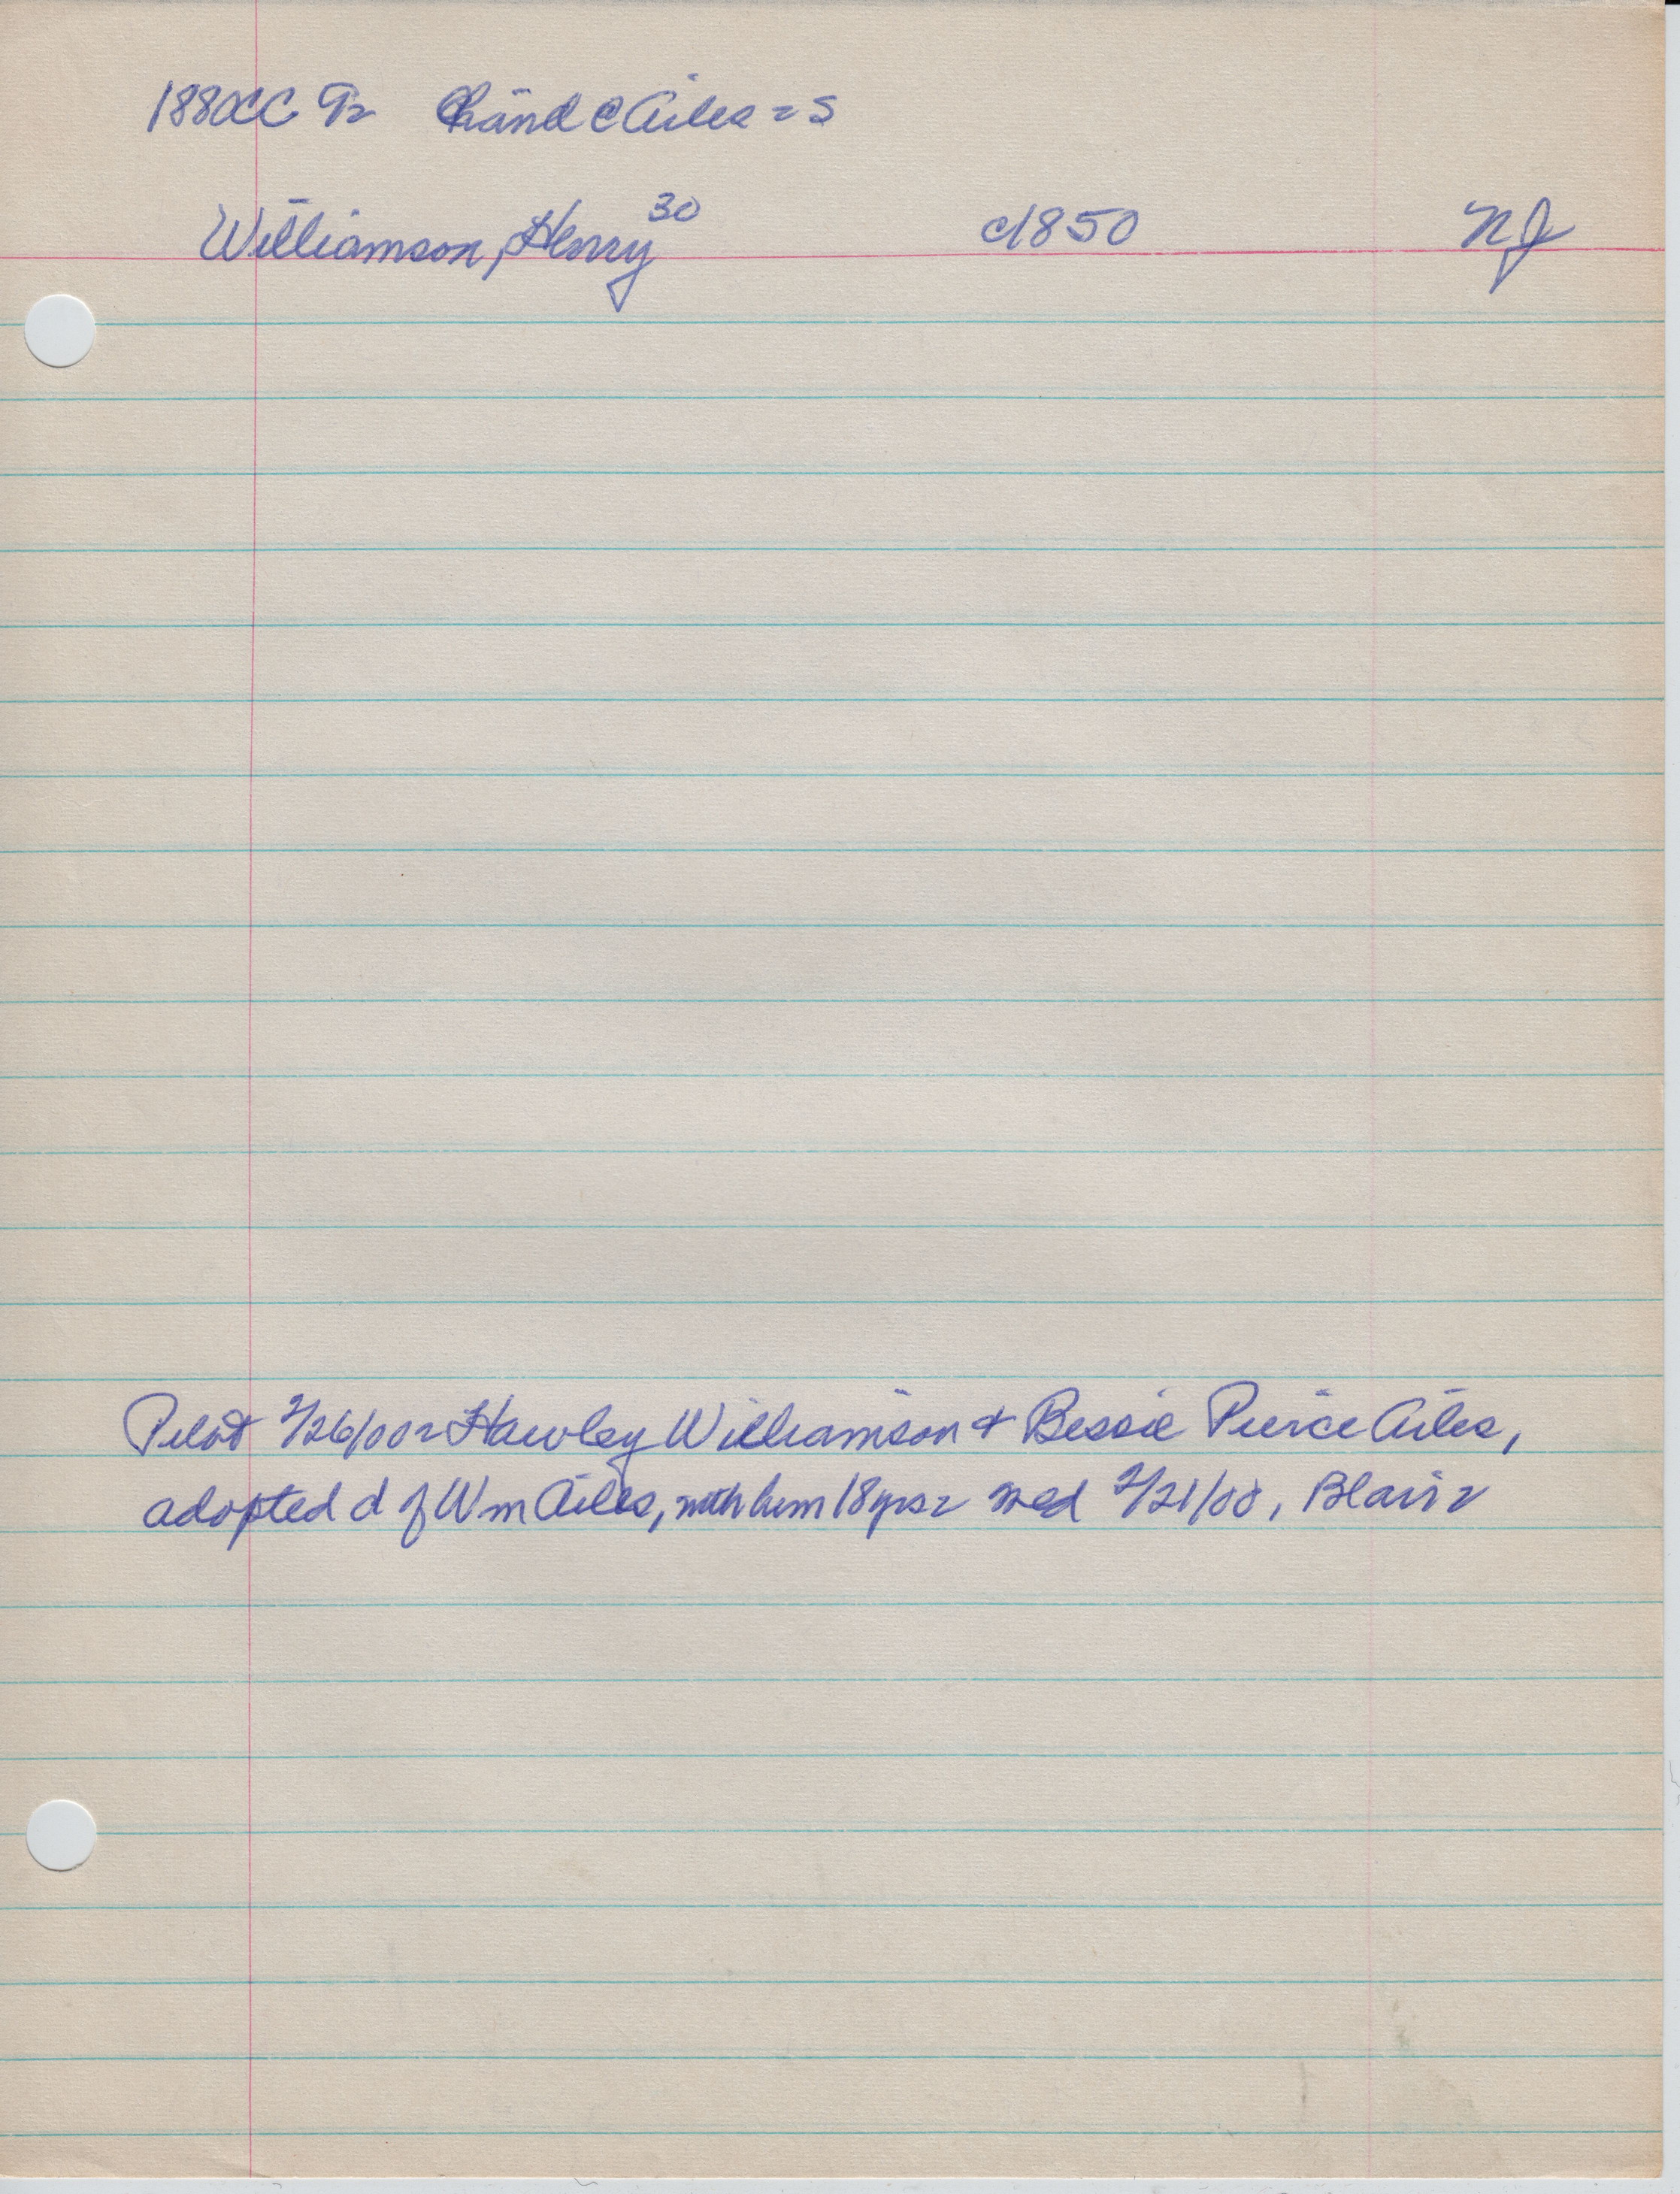 1880CC 92 Hand C Ailes = S
Williamson, Henry 30 c1850 NJ
Pilot 2/26/00 = Hawley Williamson + Bessie Pierce Ailes,
adopted d of Wm Ailes, with him 18 yrs = med 2/21/00, Blair =